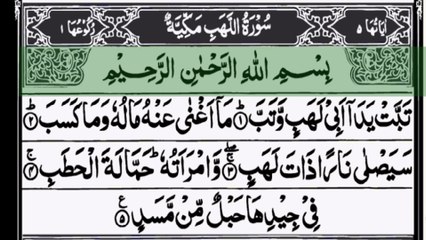 اٰيَاتُهَا ٥ سُوْرَةُ اللَّهَبِ مَكِّيَّةٌ رُكُوْعُهَا ١
بِسْمِ اللّٰهِ الرَّحْمٰنِ الرَّحِيْمِ
تَبَّتْ يَدَاۤ اَبِيْ لَهَبٍ وَّتَبَّ ؕ﴿۱﴾ مَاۤ اَغْنٰى عَنْهُ مَالُهٗ وَمَا كَسَبَ ؕ﴿۲﴾
سَيَصْلٰى نَارًا ذَاتَ لَهَبٍ ۚۖ﴿۳﴾ وَّامْرَاَتُهٗ ؕ حَمَّالَةَ الْحَطَبِ ۚ﴿۴﴾
فِيْ جِيْدِهَا حَبْلٌ مِّنْ مَّسَدٍ ﴿۵﴾ ع